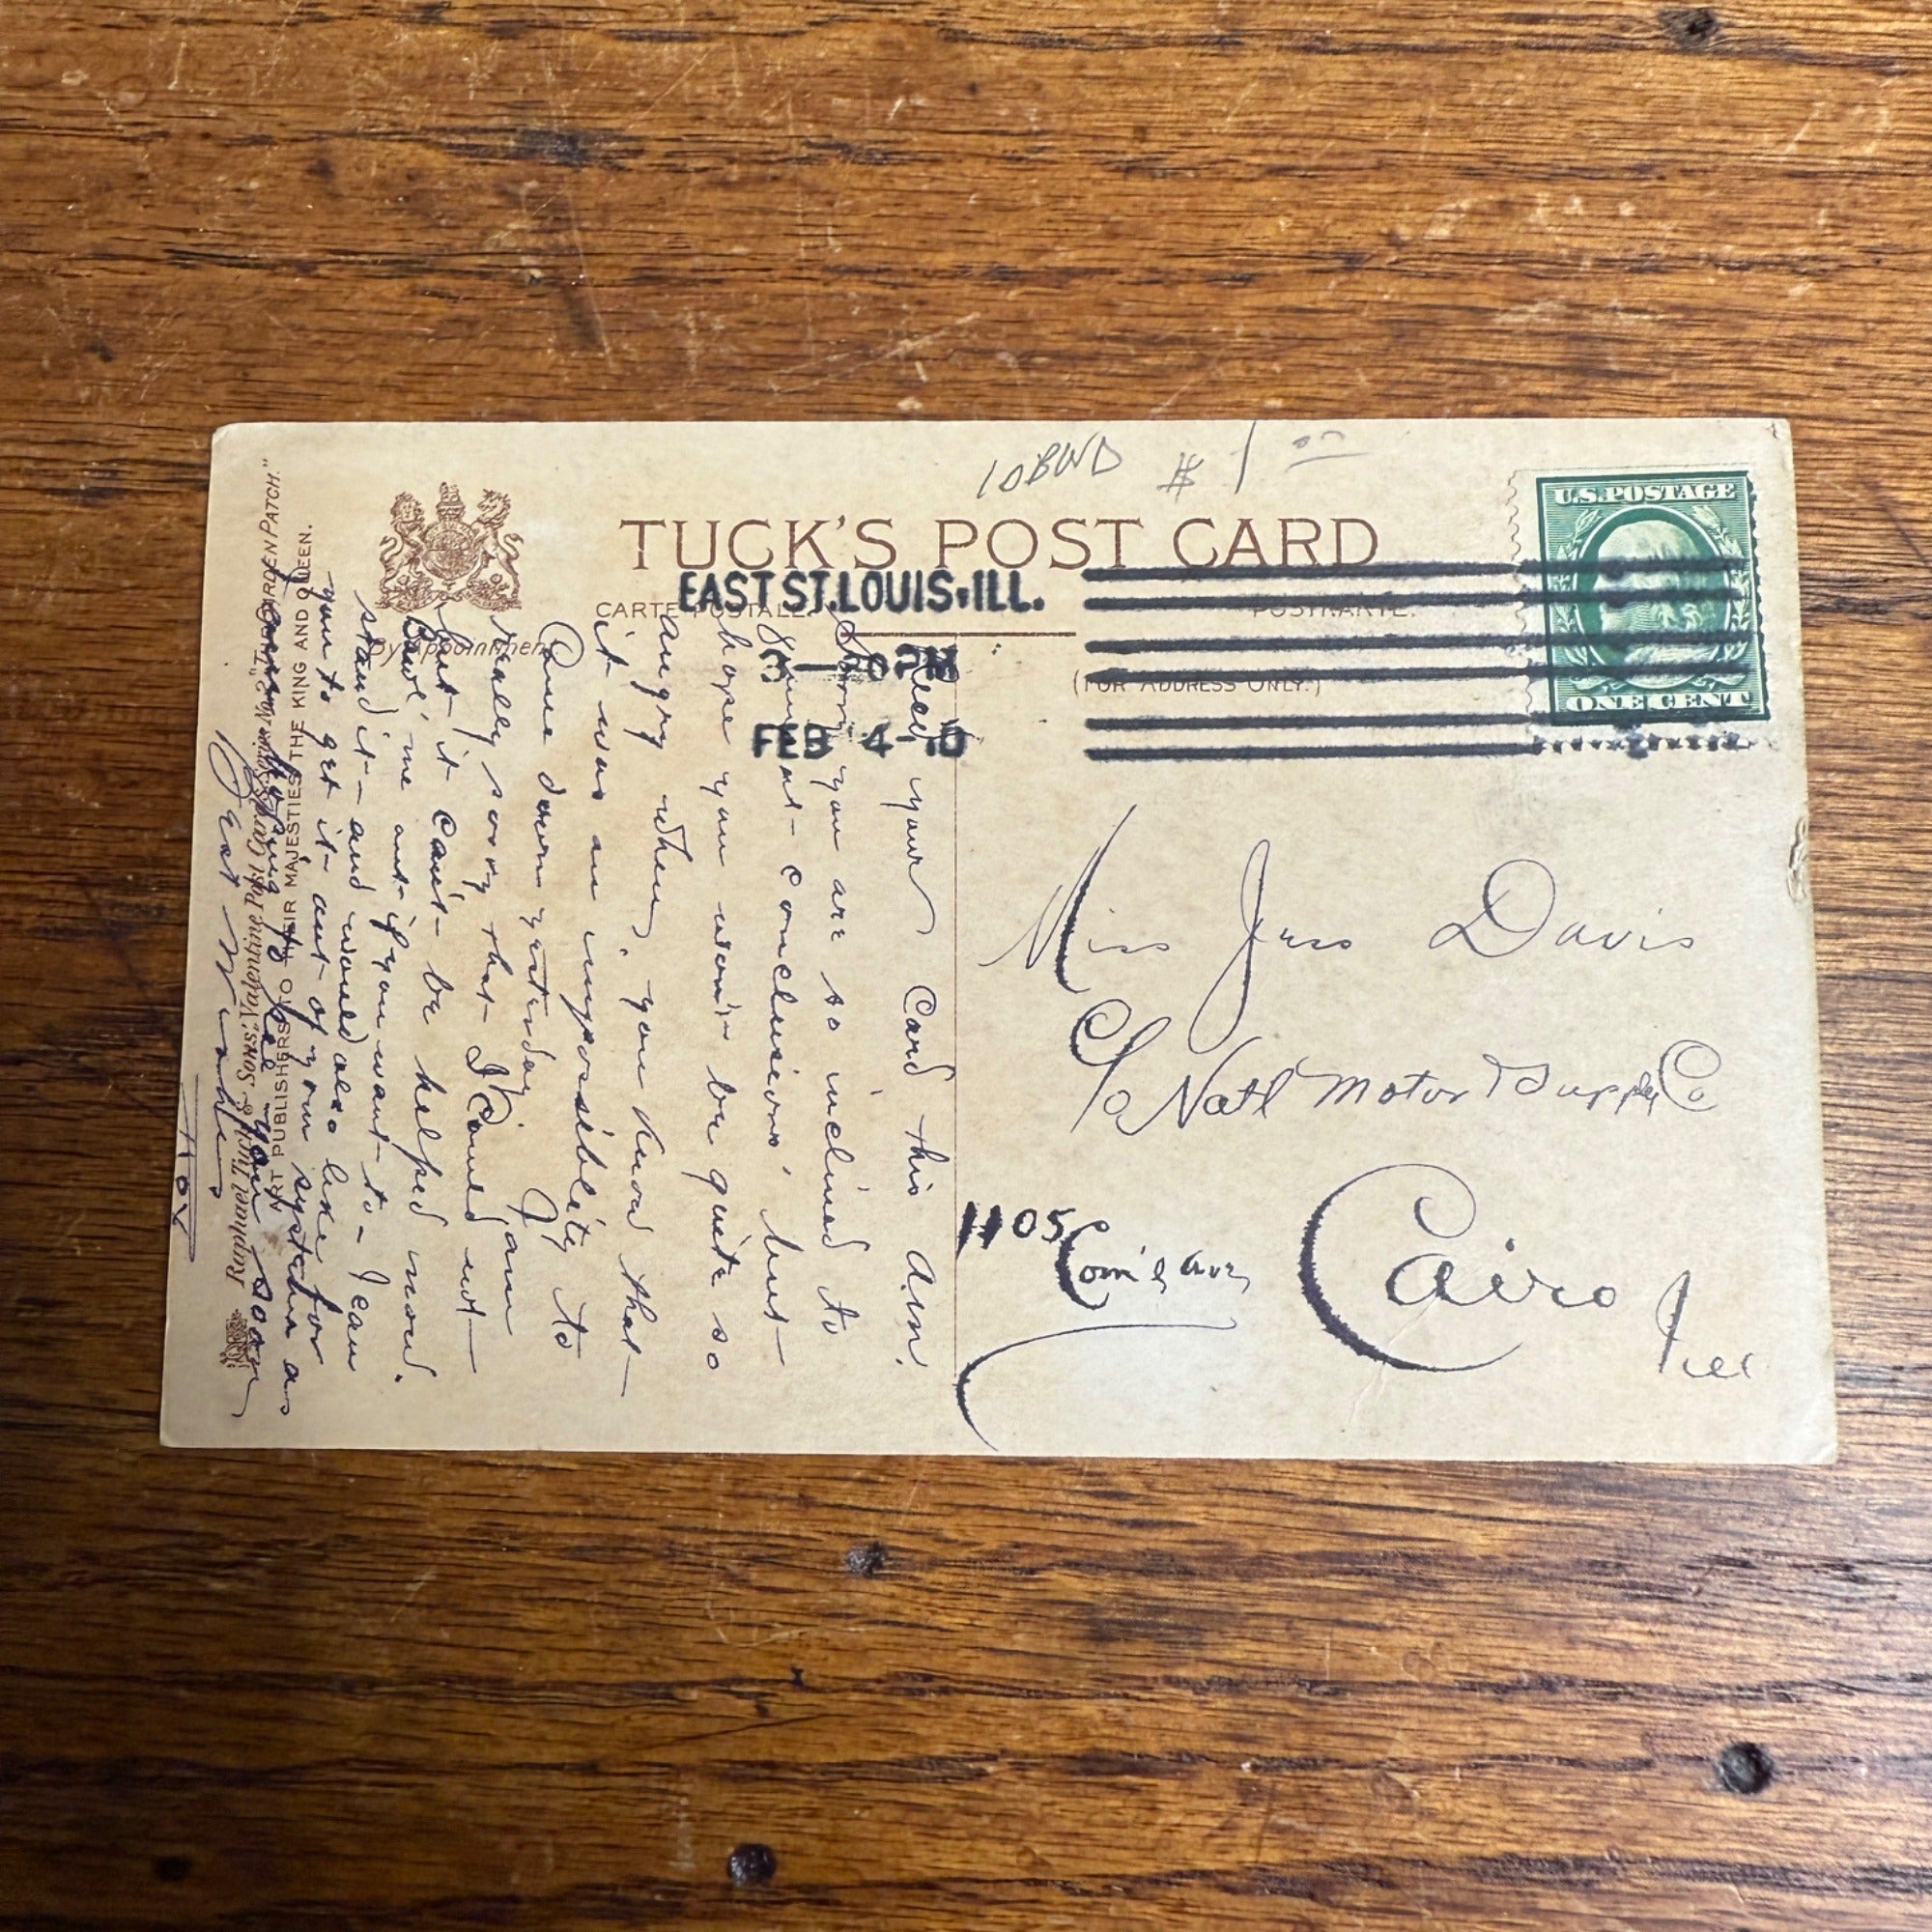 10BWD $1 00
TUCK'S POST CARD
CARTE POSTALE. POSTKARTE.
(FOR ADDRESS ONLY.)
By Appointment
U.S. POSTAGE
ONE CENT
EAST ST. LOUIS, ILL.
3 — PM
FEB 4 - 10
Miss Jess Davis
C/o Natl Motor Supply Co
1105 Com'l ave
Cairo Ill
Recd your Card this am.
Sorry you are so inclined to
"jump at conclusions" but
hope you won't be quite so
angry when, you know that
it was an impossibility to
Come down yesterday. I am
really sorry that I Could not
but it can't be helped now.
Bawl me out if you want to - I can
stand it - and would also like for
you to get it out of your system as
hoping to see you soon
Best Wishes
Raphael Tuck & Sons' Valentine Post Card Series No. 2 "The Garden Patch."
ART PUBLISHERS TO THEIR MAJESTIES THE KING AND QUEEN.